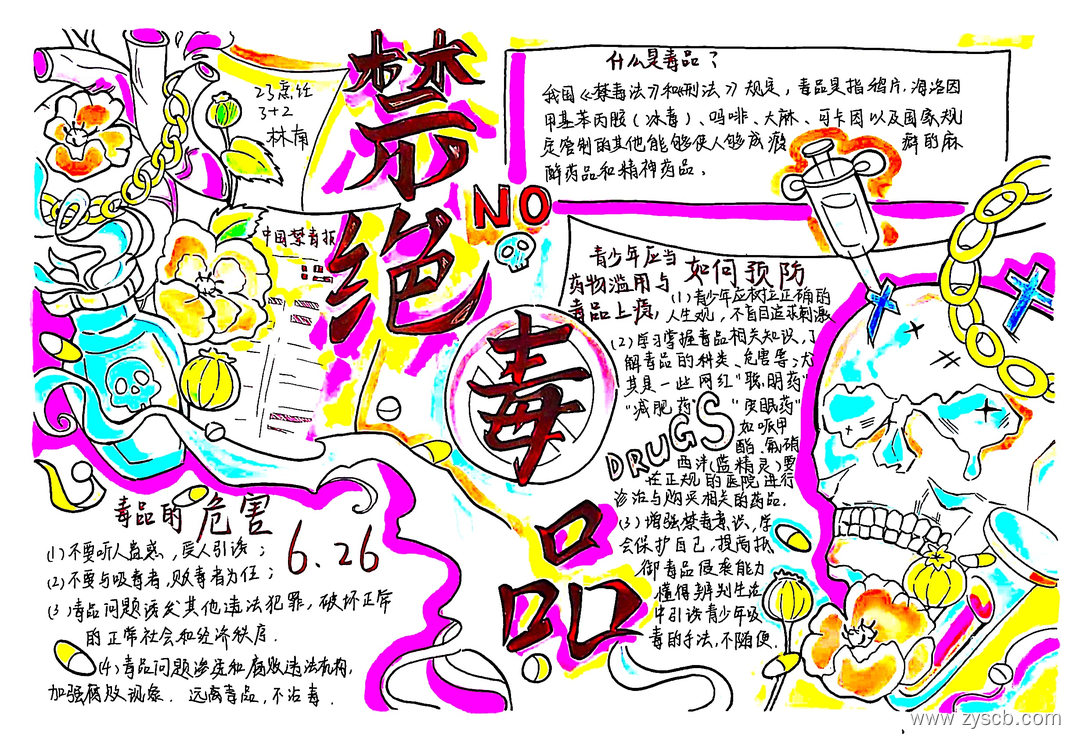 23烹饪
3+2
林南
禁绝毒品
NO
中国禁毒报
什么是毒品？
我国《禁毒法》和《刑法》规定，毒品是指鸦片、海洛因
甲基苯丙胺（冰毒）、吗啡、大麻、可卡因以及国家规
定管制的其他能够使人够成瘾癖的麻
醉药品和精神药品。
青少年应当如何预防
药物滥用与
毒品上瘾
(1)青少年应树立正确的
人生观，不盲目追求刺激
(2)学习掌握毒品相关知识，了
解毒品的种类、危害等；尤
其是一些网红"聪明药"
"减肥药""安眠药"
如哌甲
酯、氟硝
西泮(蓝精灵)要
在正规的医院进行
诊治与购买相关的药品.
DRUGS
(3)增强禁毒意识，学
会保护自己，提高抵
御毒品侵袭能力
懂得辨别生活
中引诱青少年吸
毒的手法，不随便.
毒品的危害
6.26
(1)不要听人蛊惑，受人引诱；
(2)不要与吸毒者，贩毒者为伍；
(3)毒品问题诱发其他违法犯罪，破坏正常
的正常社会和经济秩序.
(4)毒品问题渗透和腐败违法机构,
加强腐败现象. 远离毒品,不沾毒.
www.zyscb.com